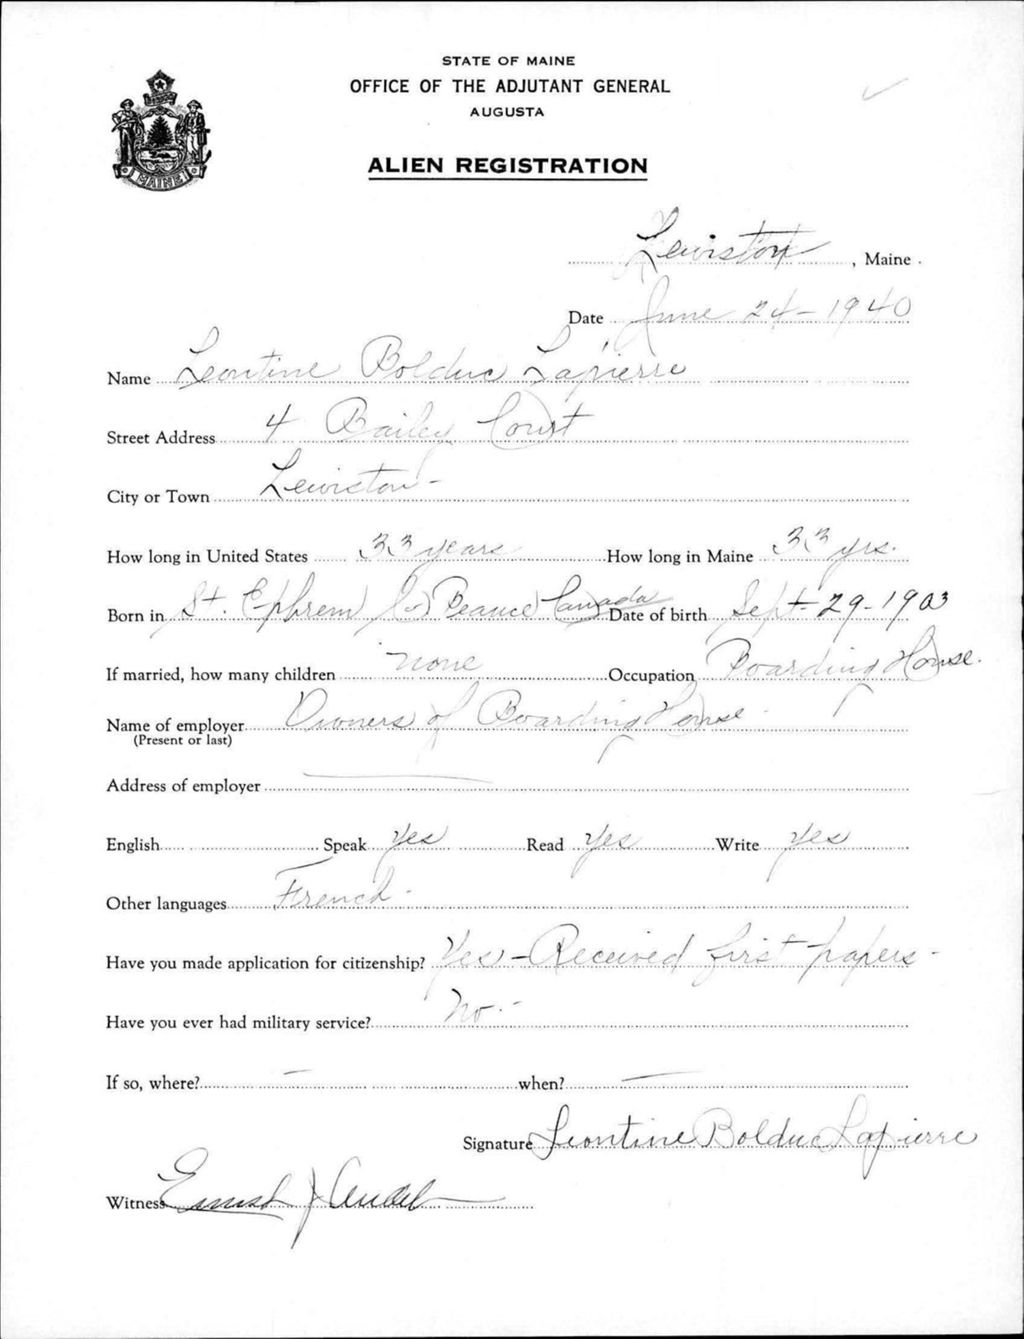 STATE OF MAINE
OFFICE OF THE ADJUTANT GENERAL
AUGUSTA
MAINE
ALIEN REGISTRATION
Lewiston, Maine
Date June 24-1940
Name Leontine Bolduc Lapierre
Street Address 4 Bailey Court
City or Town Lewiston-
How long in United States 33 years How long in Maine 33 yrs.
Born in St. Ephrem Beauce Canada Date of birth Sept-29-1903
If married, how many children none Occupation Boarding House.
Name of employer Owners of Boarding House
(Present or last)
Address of employer —
English Speak Yes Read Yes Write Yes
Other languages French.
Have you made application for citizenship? Yes-Received first papers-
Have you ever had military service? No.-
If so, where? — when? —
Signature Leontine Bolduc Lapierre
Witness J